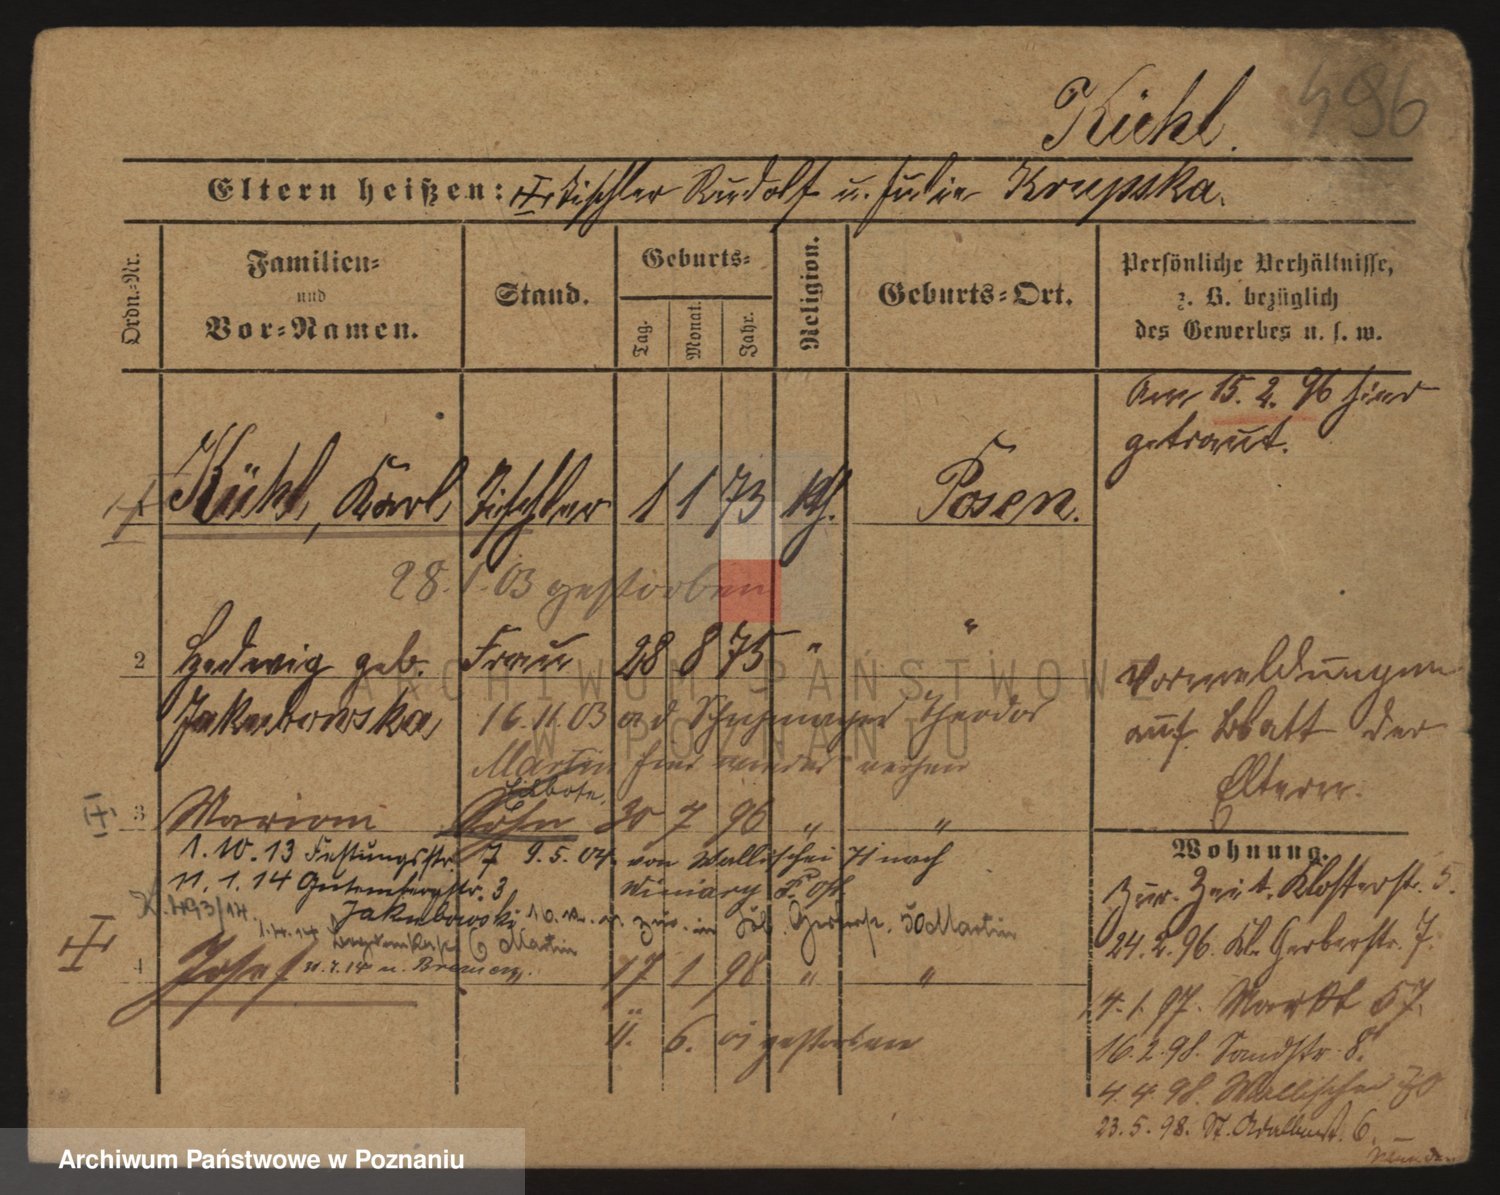 496
Kühl.
Eltern heißen: Tischler Rudolf u. Julie Krupska.
Ordn.-Nr.
Familien-
und
Vor-Namen.
Stand.
Geburts-
Tag.
Monat.
Jahr.
Religion.
Geburts-Ort.
Persönliche Verhältnisse,
z. B. bezüglich
des Gewerbes u. s. w.
Am 15. 2. 96 hier
getraut.
Kühl, Karl, Tischler 1 1 73 kth. Posen.
28. 1. 03 gestorben
2 Hedwig geb. Frau 28 8 75 " "
Jakubowska, 16. 11. 03 Theodor
Martin hier
Vormeldungen
auf Blatt der
Eltern.
3 Marian Sohn 30 7 96 " "
1. 10. 13 Festungsstr. 7 9. 5. 04. von Wallischei 71 nach
11. 1. 14 Gutenbergstr. 3 Winiary P. Ost
K. 493/14. Jakubowski Martin
Martin
4 Josef 17 1 98 " "
11. 6. 01 gestorben
Wohnung.
Zur Zeit. Klosterstr. 5.
24. 2. 96. Kl. Gerberstr. 7.
4. 1. 97. Markt 57.
16. 2. 98. Sandstr. 8.
4. 4. 98. Wallischei 70
23. 5. 98. St. Adalbertstr. 6.
ARCHIWUM PAŃSTWOWE
W POZNANIU
Archiwum Państwowe w Poznaniu